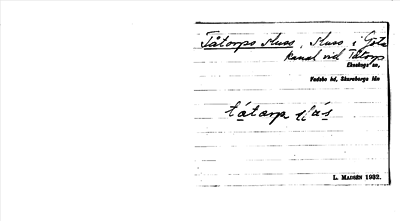 Tåtorps sluss, Sluss i Göta
kanal vid Tåtorp
Ekeskogs sn,
Vadsbo hd, Skaraborgs län
tátorp
L. MADSÉN 1932.